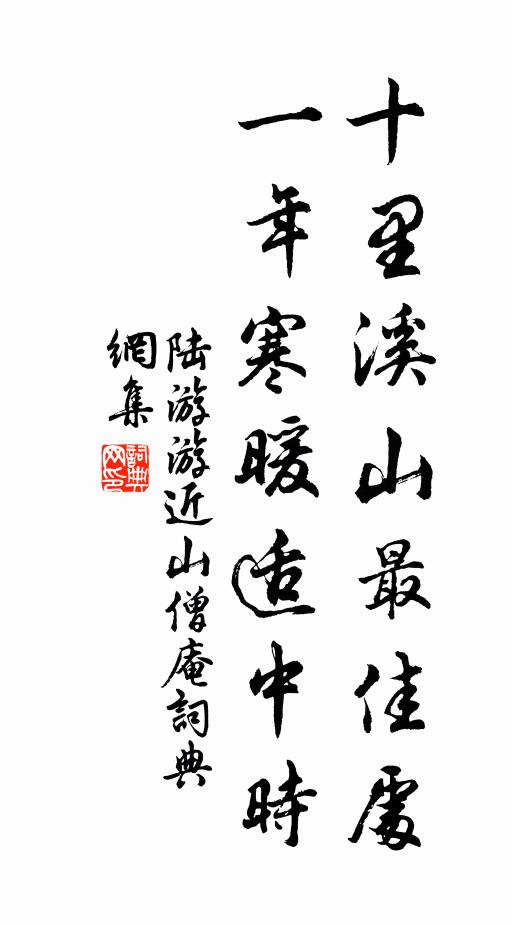 十里溪山最佳處
一年寒暖适中時
陆游游近山僧庵詞典
網集
詞典
网印